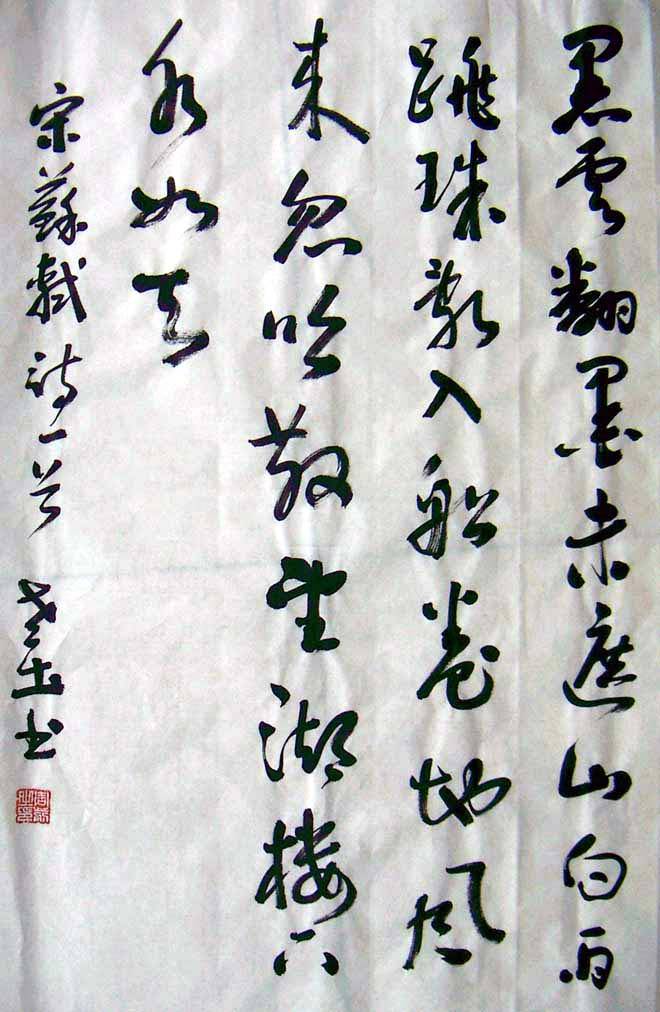 黑雲翻墨未遮山白雨
跳珠亂入船卷地風
来忽吹散望湖樓下
水如天
宋蘇軾詩一首
書